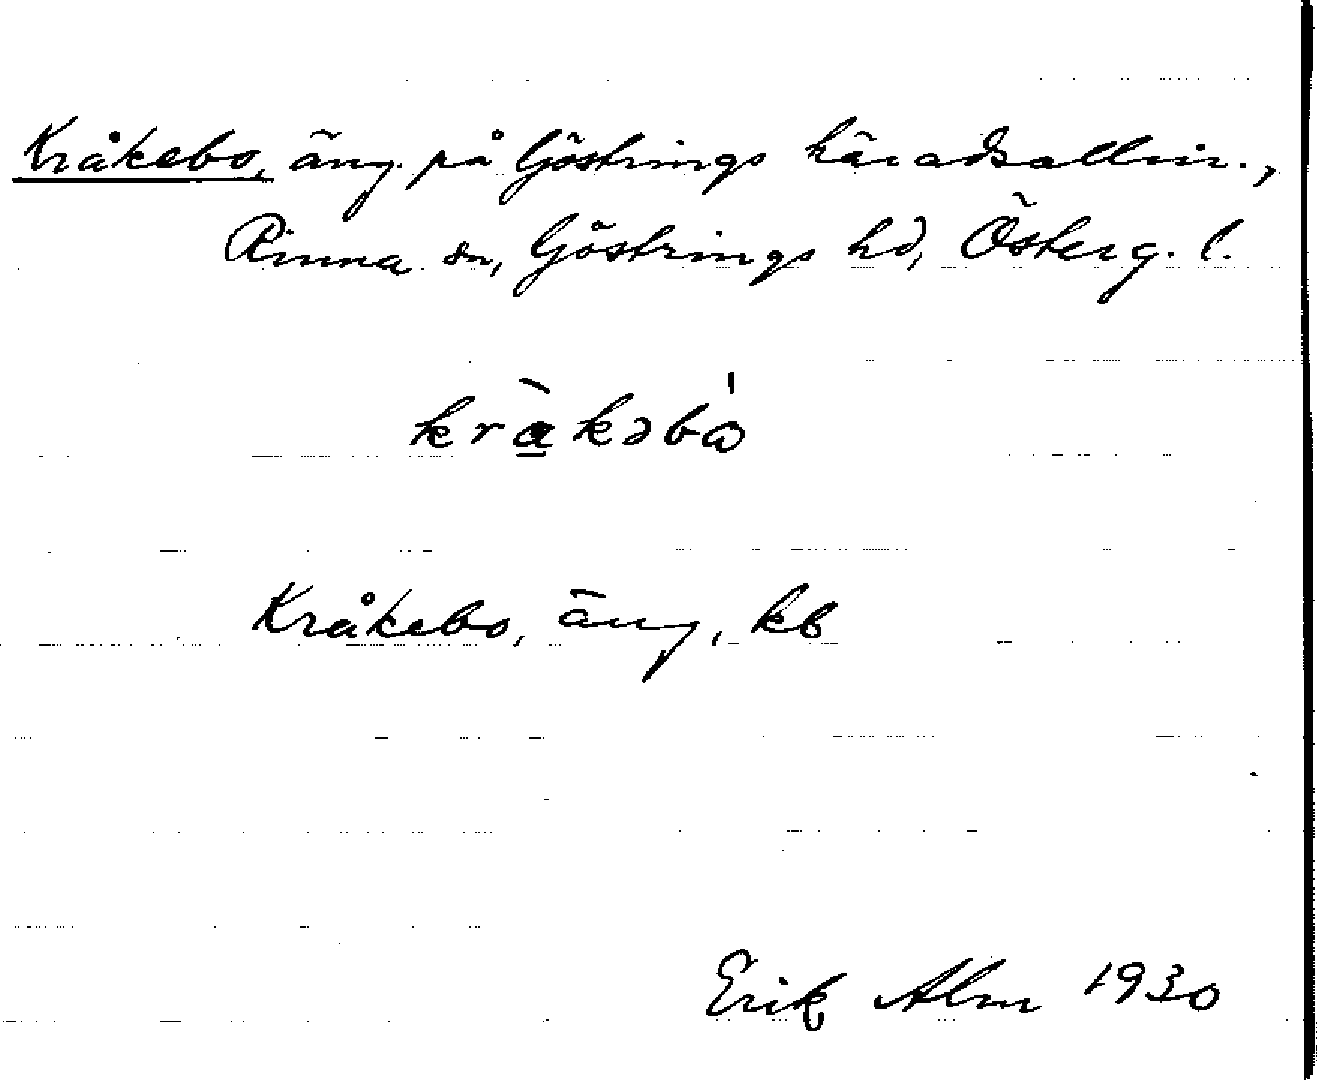 Kråkebo, äng. på Göstrings häradsallm.,
Rinna sn, Göstrings hd, Österg. l.
Kråkebo, äng, kb
Erik Alm 1930